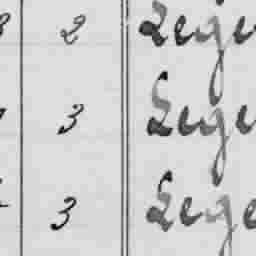 2 Lege
3 Lege
3 Lege